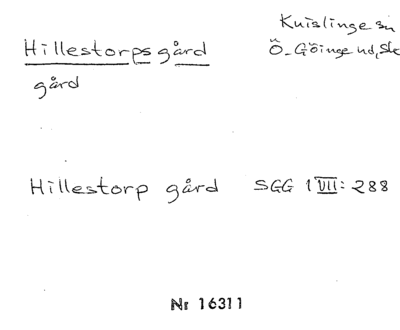 Hillestorps gård
Knislinge sn
Ö. Göinge hd, Sk
gård
Hillestorp gård SGG 1 VII: 288
Nr 16311